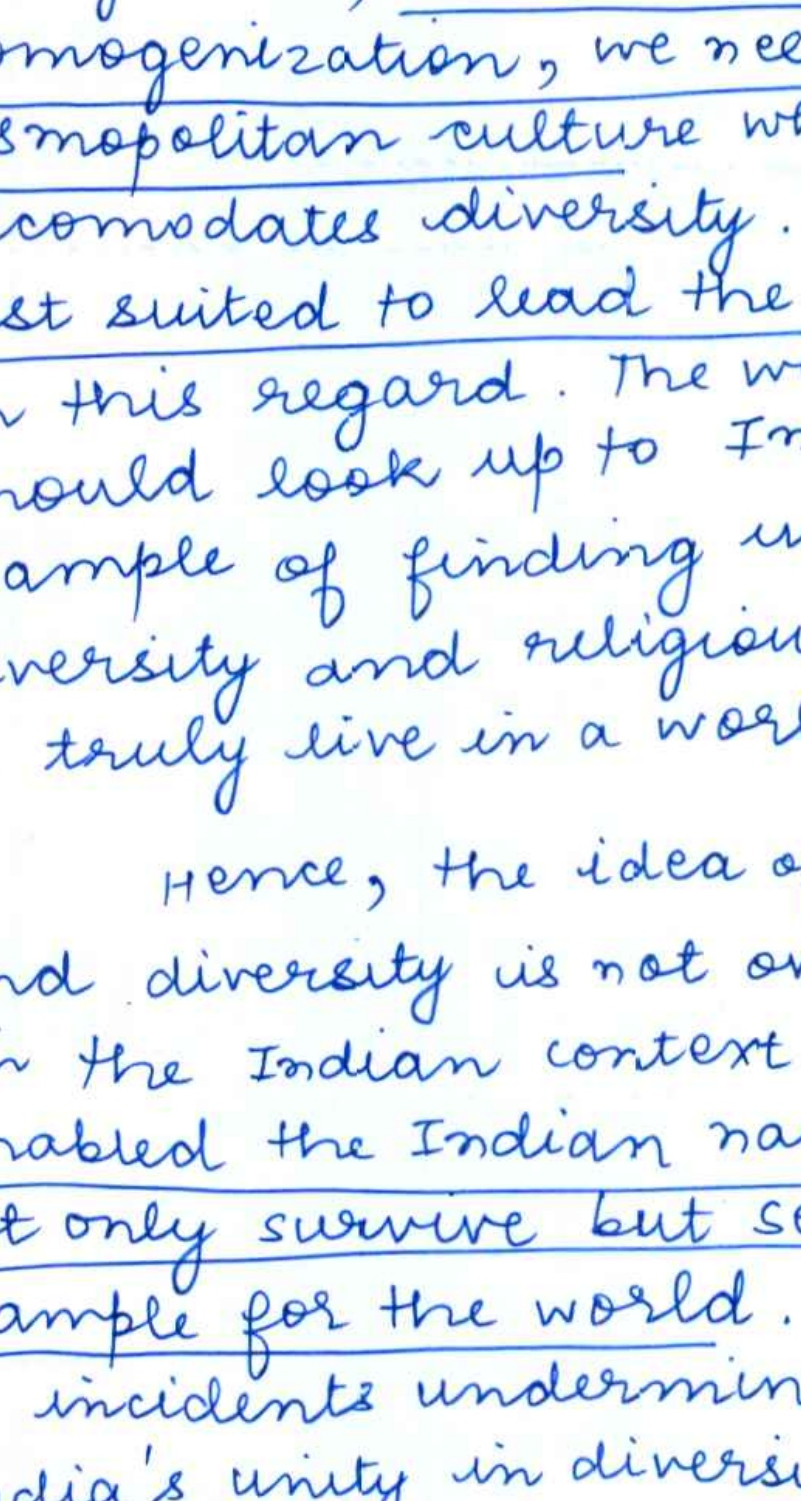 omogenization, we nee
smopolitan culture wh
comodates diversity.
st suited to lead the
this regard. The w
hould look up to In
ample of finding u
versity and religiou
truly live in a worl
Hence, the idea o
nd diversity is not on
the Indian context
nabled the Indian na
t only survive but se
ample for the world.
incidents undermin
dia's unity in diversi